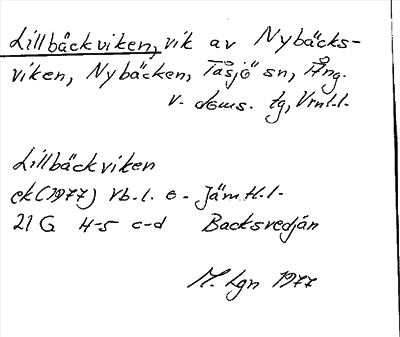 Lillbäckviken, vik av Nybäcks-
viken, Nybäcken, Tåsjö sn, Ång.
v. doms. tg, Vml.l.
Lillbäckviken
ek (1977) Vb.l. o - Jämtl.l-
21 G 4-5 c-d Backsvedjån
M. Lgn 1977